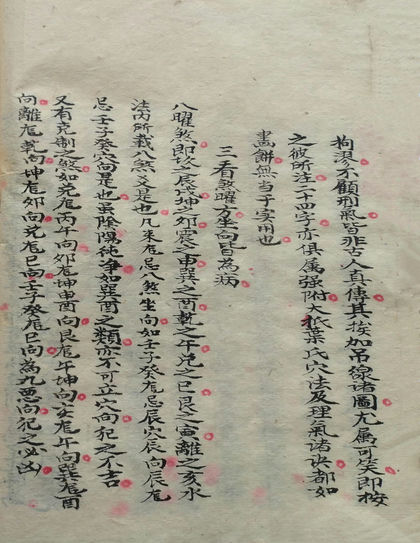 拘謬不顧刑氣皆非古人真傳其挨加吊線諸圖尤属可笑即按
之彼所注二十四字亦俱属强附大抵葉氏穴法及理氣諸訣都如
畫餅無当于实用也
三看煞曜方坐向皆為病
八曜煞即坎之辰戌坤之卯震之申巽之酉乾之午兑之巳艮之寅離之亥水
法内所载八煞是也凡来龙忌八煞坐向如壬子癸龙忌辰穴辰向辰龙
忌壬子癸穴向是也虽陰陽純净如巽酉之類亦不可立穴向犯之不吉
又有克制之煞如兑龙丙午向卯龙坤申酉向艮龙午坤向亥龙午向巽龙酉
向離龙乾向坤龙卯向兑龙巳向壬子癸龙巳向為九曜向犯之必凶